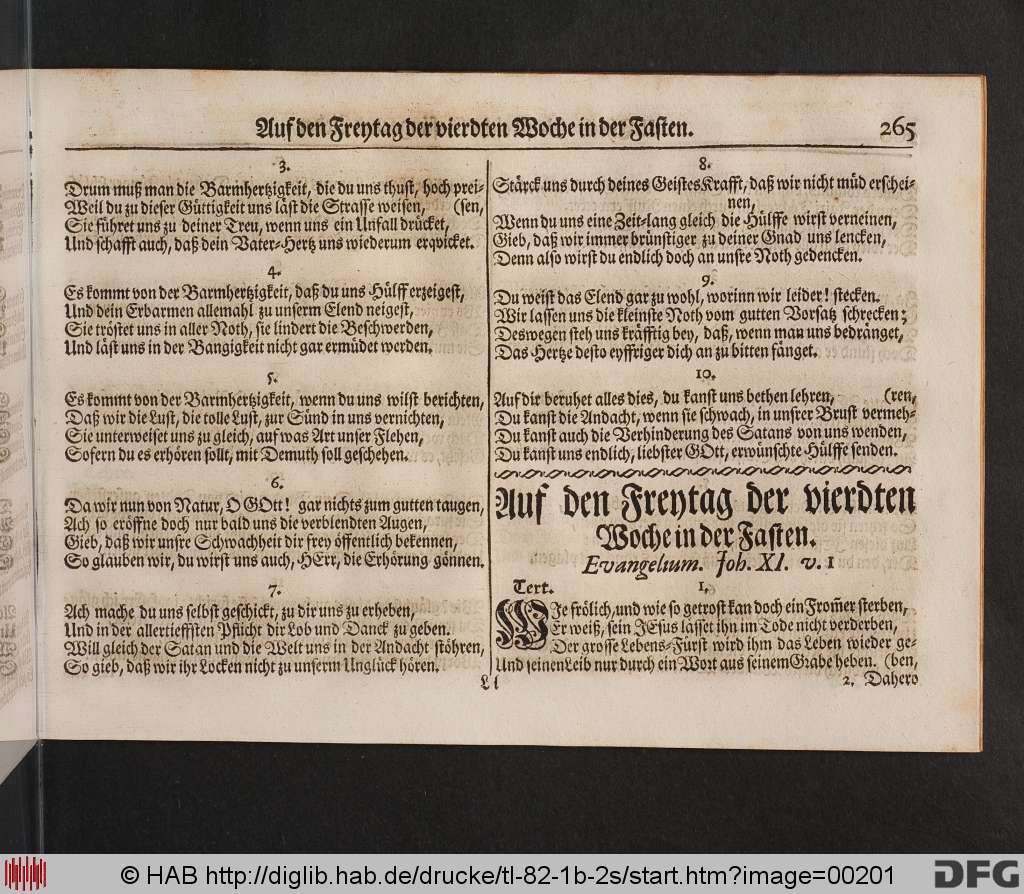 Auf den Freytag der vierdten Woche in der Fasten. 265
3.
Drum muß man die Barmhertzigkeit, die du uns thust, hoch prei-
Weil du zu dieser Güttigkeit uns läst die Strasse weisen, (sen,
Sie führet uns zu deiner Treu, wenn uns ein Unfall drücket,
Und schafft auch, daß dein Vater-Hertz uns wiederum erqvicket.
4.
Es kommt von der Barmhertzigkeit, daß du uns Hülff erzeigest,
Und dein Erbarmen allemahl zu unserm Elend neigest,
Sie tröstet uns in aller Noth, sie lindert die Beschwerden,
Und läst uns in der Bangigkeit nicht gar ermüdet werden.
5.
Es kommt von der Barmhertzigkeit, wenn du uns wilst berichten,
Daß wir die Lust, die tolle Lust, zur Sünd in uns vernichten,
Sie unterweiset uns zu gleich, auf was Art unser Flehen,
Sofern du es erhören sollt, mit Demuth soll geschehen.
6.
Da wir nun von Natur, O GOtt! gar nichts zum gutten taugen,
Ach so eröffne doch nur bald uns die verblendten Augen,
Gieb, daß wir unsre Schwachheit dir frey öffentlich bekennen,
So glauben wir, du wirst uns auch, HErr, die Erhörung gönnen.
7.
Ach mache du uns selbst geschickt, zu dir uns zu erheben,
Und in der allertieffsten Pflicht dir Lob und Danck zu geben.
Will gleich der Satan und die Welt uns in der Andacht stöhren,
So gieb, daß wir ihr Locken nicht zu unserm Unglück hören.
8.
Stärck uns durch deines Geistes Krafft, daß wir nicht müd erschei-
nen,
Wenn du uns eine Zeit-lang gleich die Hülffe wirst verneinen,
Gieb, daß wir immer brünstiger zu deiner Gnad uns lencken,
Denn also wirst du endlich doch an unsre Noth gedencken.
9.
Du weist das Elend gar zu wohl, worinn wir leider! stecken.
Wir lassen uns die kleinste Noth vom gutten Vorsatz schrecken;
Deswegen steh uns kräfftig bey, daß, wenn man uns bedränget,
Das Hertze desto eyffriger dich an zu bitten fänget.
10.
Auf dir beruhet alles dies, du kanst uns bethen lehren, (ren,
Du kanst die Andacht, wenn sie schwach, in unsrer Brust vermeh-
Du kanst auch die Verhinderung des Satans von uns wenden,
Du kanst uns endlich, liebster GOtt, erwünschte Hülffe senden.
Auf den Freytag der vierdten
Woche in der Fasten.
Evangelium. Joh. XI. v. 1
Text. 1.
WIe frölich, und wie so getrost kan doch ein From̃er sterben,
Er weiß, sein JEsus lässet ihn im Tode nicht verderben,
Der grosse Lebens-Fürst wird ihm das Leben wieder ge-
Und seinen Leib nur durch ein Wort aus seinem Grabe heben. (ben,
Ll
2. Dahero
© HAB http://diglib.hab.de/drucke/tl-82-1b-2s/start.htm?image=00201
DFG